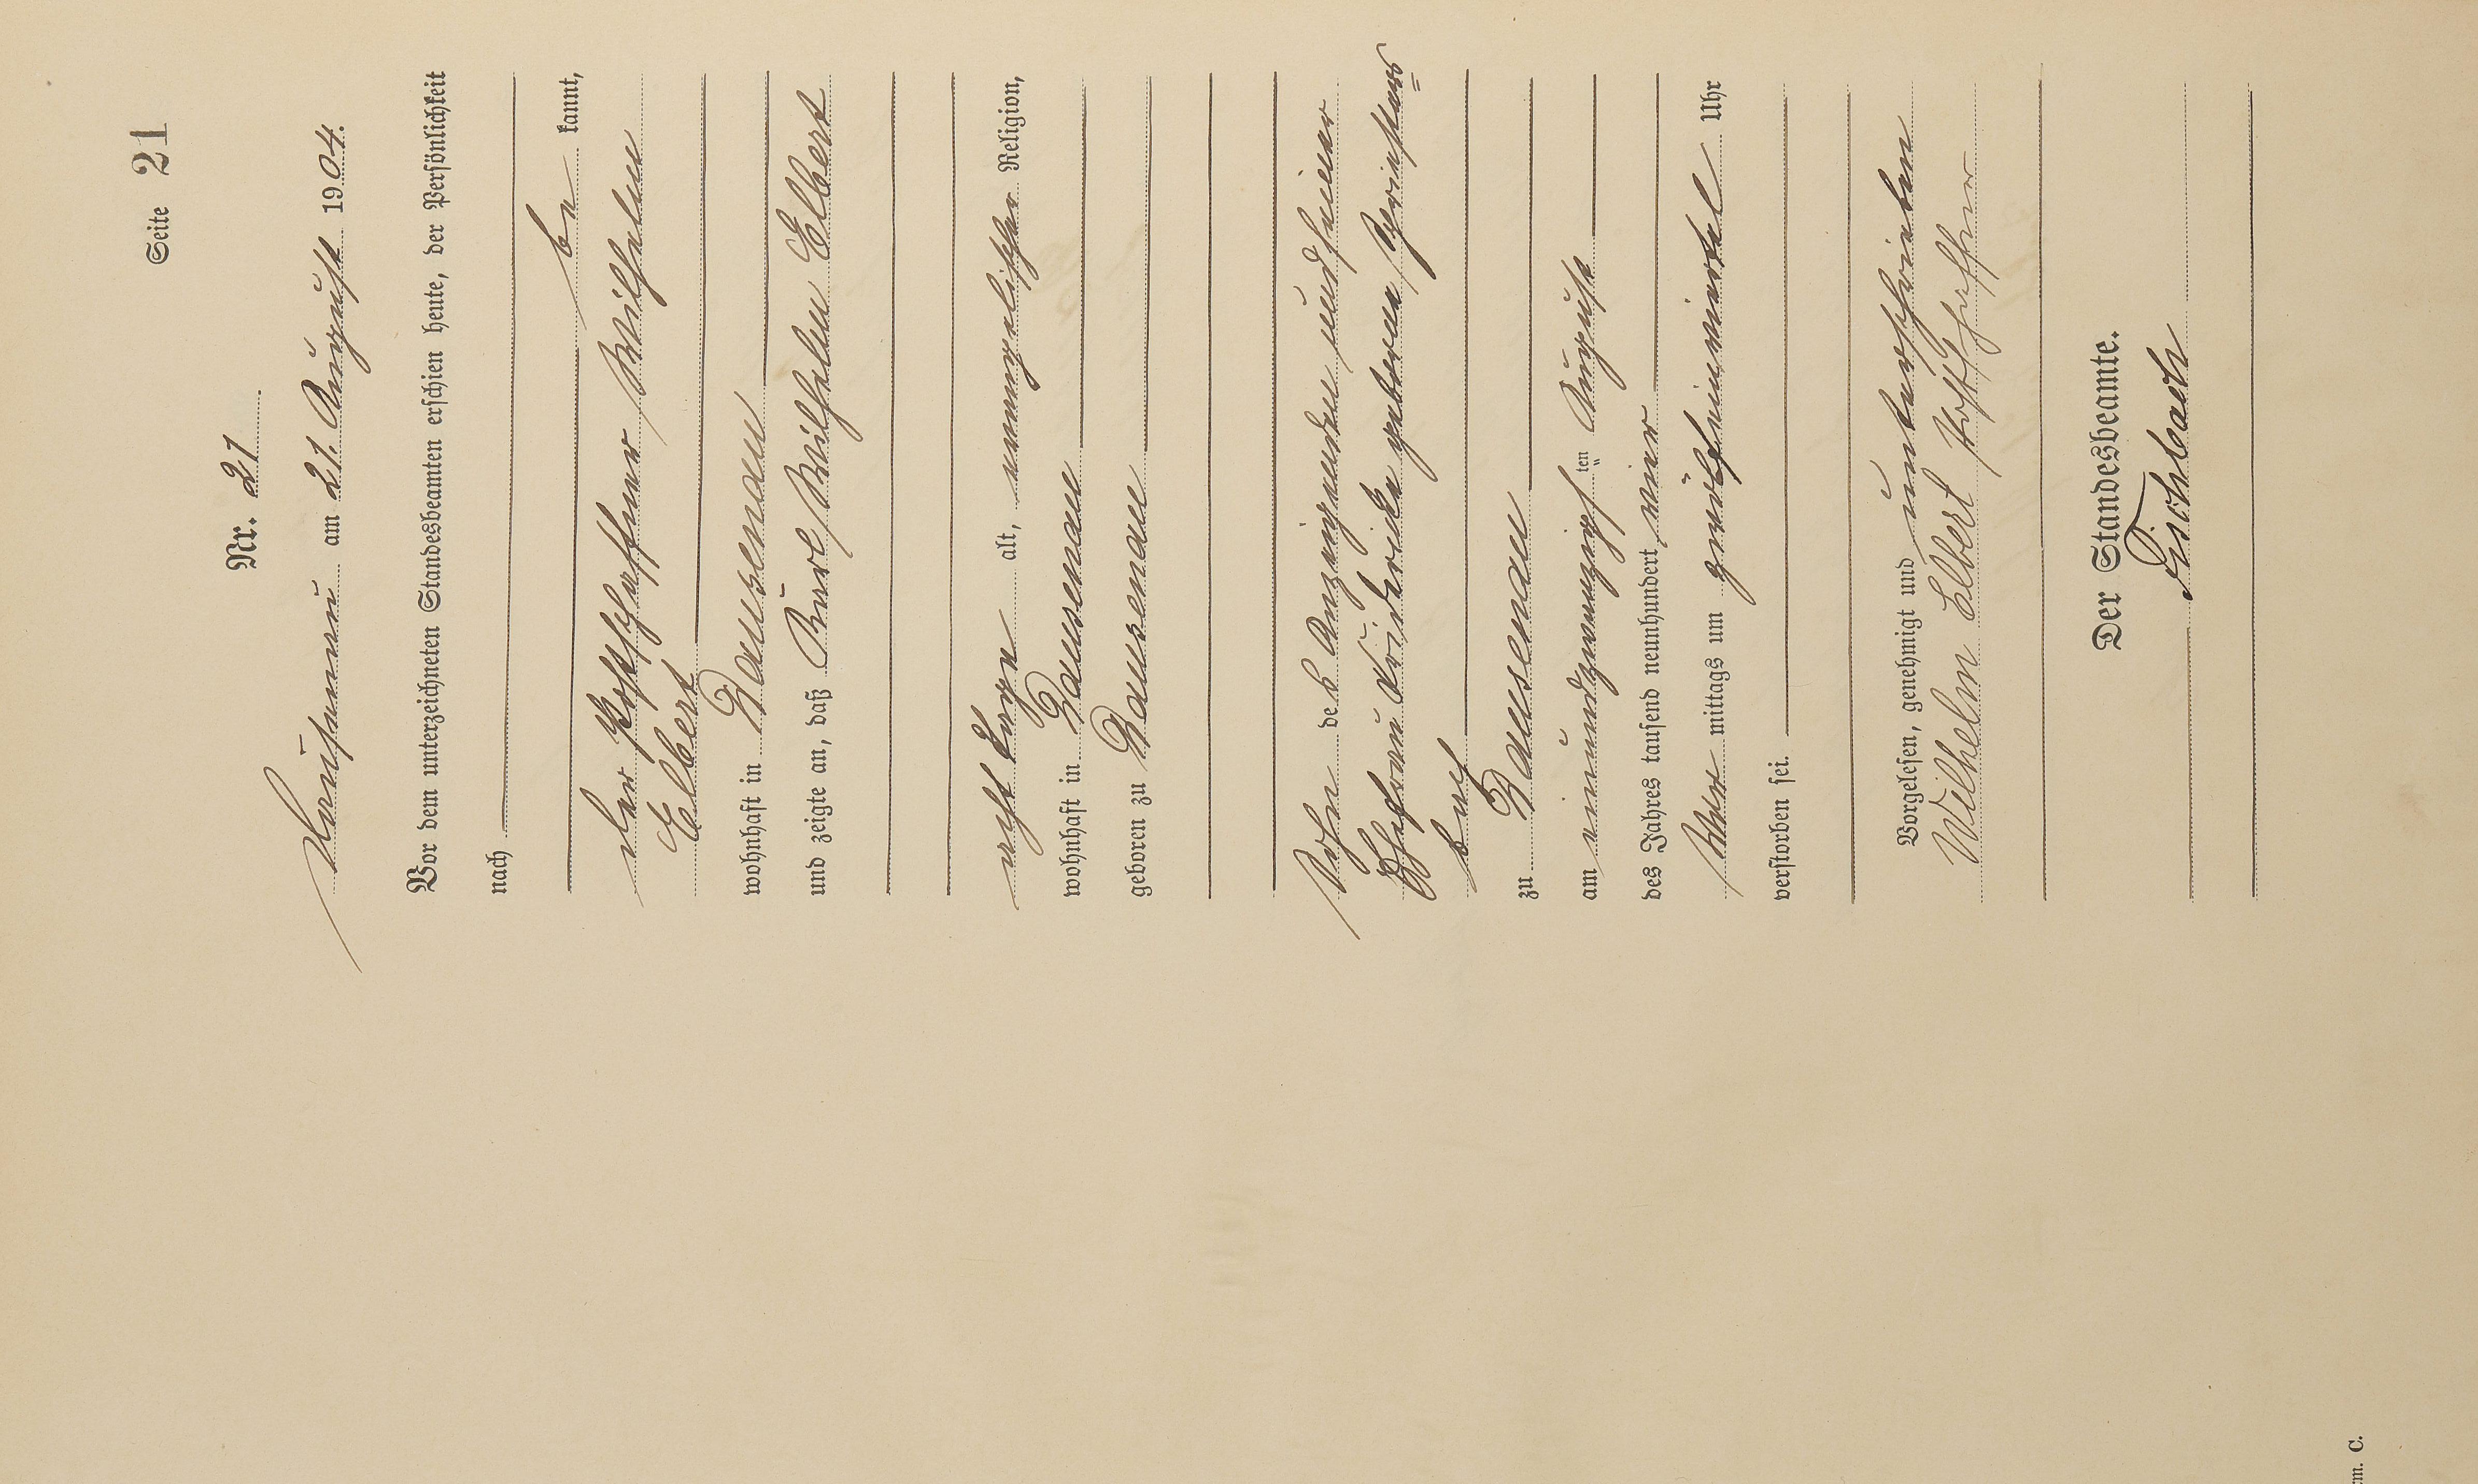 Seite 21
Nr. 21
Dausenau am 21. August 1904.
Vor dem unterzeichneten Standesbeamten erschien heute, der Persönlichkeit
nach
be kannt,
der Postschaffner Wilhelm
Elbert
wohnhaft in Dausenau
und zeigte an, daß Karl Wilhelm Elbert
acht Tage alt, evangelischer Religion,
wohnhaft in Dausenau
geboren zu Dausenau
Sohn des Anzeigenden und seiner
Ehefrau Friderike geborene
bach
zu Dausenau
am einundzwanzigsten August
des Jahres tausend neunhundert vier
Vor mittags um zwölfeinviertel Uhr
verstorben sei.
Vorgelesen, genehmigt und unterschrieben
Wilhelm Elbert Postschaffner
Der Standesbeamte.
Fischbach
rm. C.